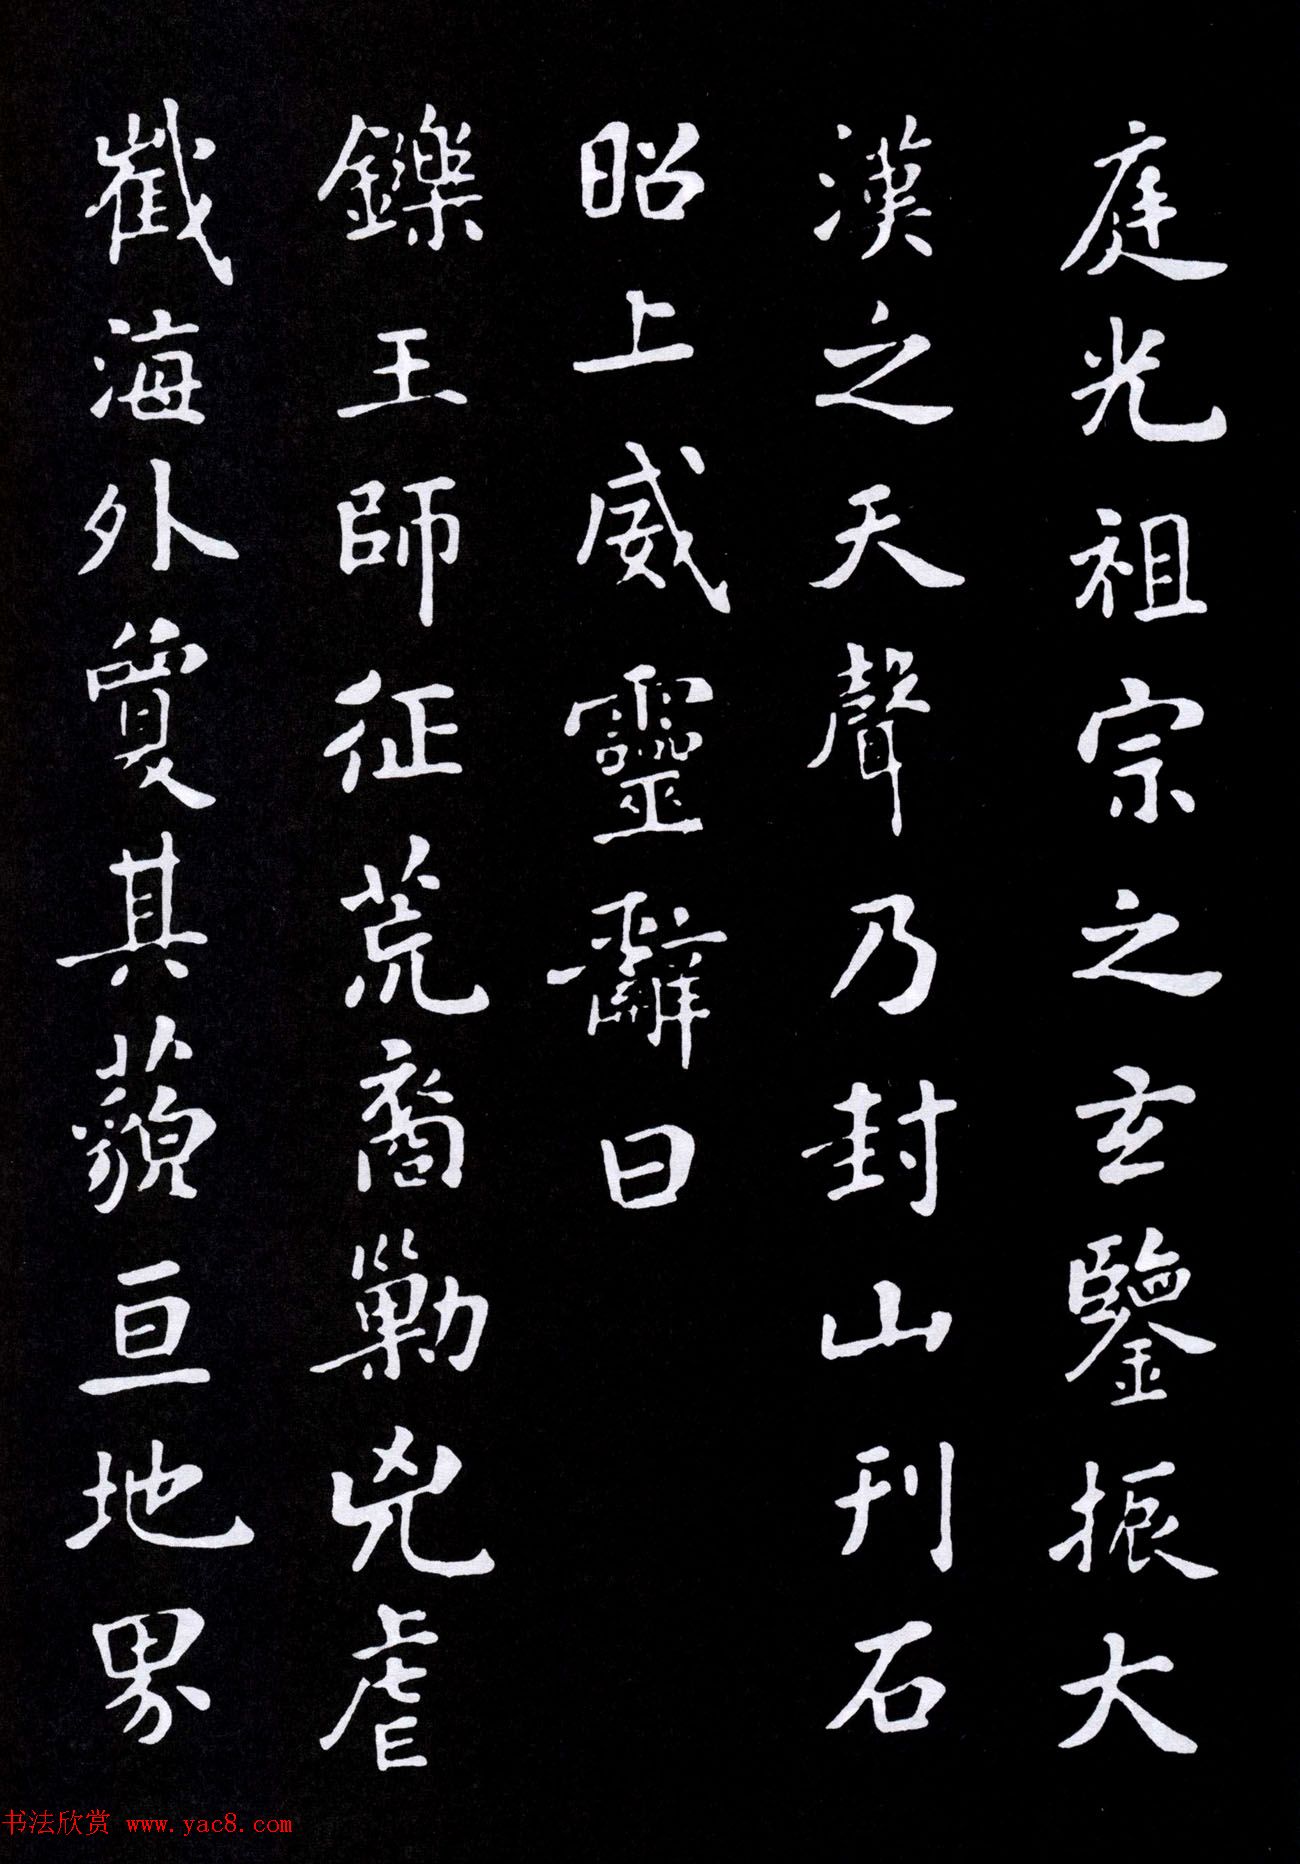 庭光祖宗之玄鑒振大
漢之天聲乃封山刊石
昭上威靈辭曰
鑠王師征荒裔勦凶虐
截海外夐其藐亘地界
书法欣赏 www.yac8.com